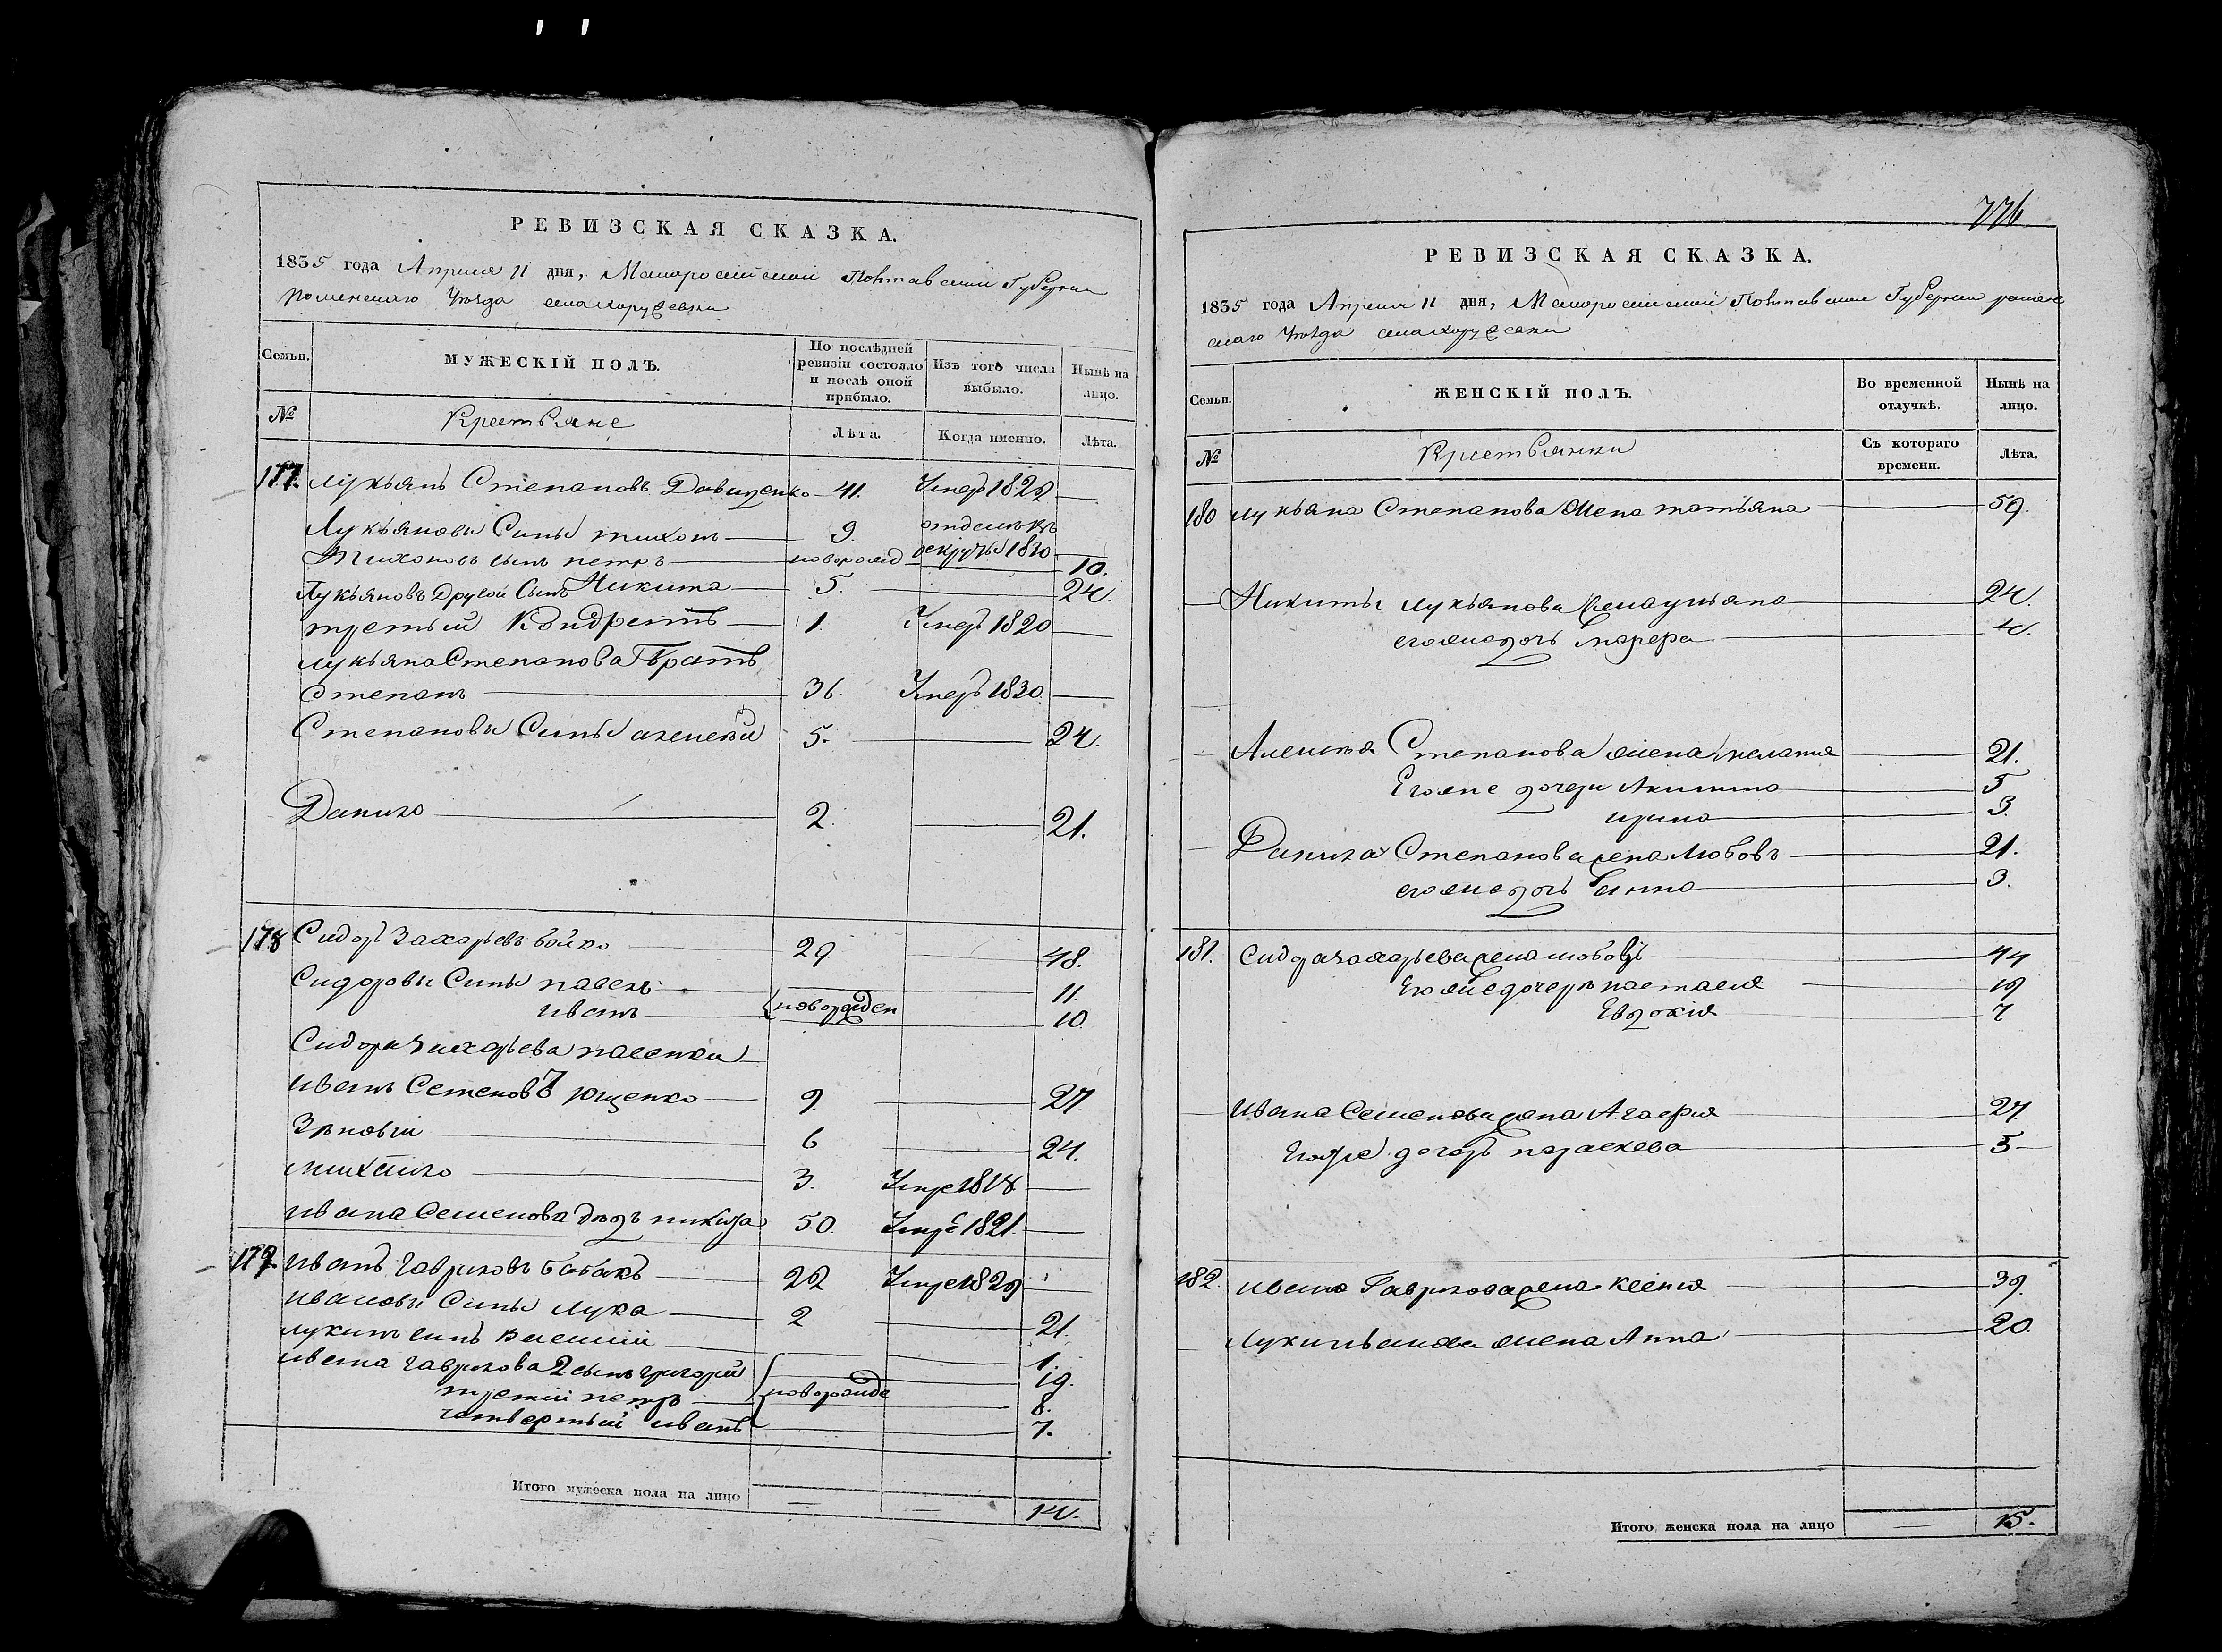 РЕВИЗСКАЯ СКАЗКА.
1835 года Апреля 11 дня, Малоросийской Полтавской Губернии
роменского Уѣзда села хоружевки
Семьи. МУЖЕСКІЙ ПОЛЪ. По послѣдней ревизіи состояло и послѣ оной прибыло. Изъ того числа выбыло. Нынѣ на лицо.
№ Крестьяне Лѣта. Когда именно. Лѣта.
177. Лукьянъ Степановъ Давиденко 41. Умеръ 1829
Лукьяновы Сины тихонъ 9. отдан въ рекруты 1820
Тихоновъ сынъ петръ новорожд 10.
Лукьяновъ Другой Сынъ Никита 5. 24.
третый Кондратъ 1. Умеръ 1820
лукьяна Степанова Братъ
степанъ 36. Умеръ 1830.
Степановы Сины алексей 5. 24.
Данило 2. 21.
178 Сидоръ Захарьевъ бойко 29 48.
Сидоровы Сины павелъ 11.
иванъ новорожден 10
Сидора захарьева пасенки
иванъ Семеновъ ющенко 9. 27.
Зѣновій 6 24.
михайло 3. Умре 1818
ивана Семенова дядъ никита 50. Умре 1821.
179. иванъ Гавриловъ бабакъ 22 Умре 1829
ивановы Сины лука 2 21.
лукинъ синъ василий 1.
ивана гаврилова 2 сынъ григорий 19.
третий петръ новорожде 8.
четвертый иванъ 7.
Итого мужеска пола на лицо — — 14.
776
РЕВИЗСКАЯ СКАЗКА.
1835 года Апреля 11 дня, Малоросийской Полтавской Губернии ромен
скаго Уѣзда села хоружевки
Семьи. ЖЕНСКІЙ ПОЛЪ. Во временной отлучкѣ. Нынѣ на лицо.
№ Крестьянки Съ котораго времени. Лѣта.
180 лукьяна Степанова жена татьяна 59.
Никиты лукьянова жена ульяна 24.
его же дочь 4.
Алексѣя Степанова жена мелания 21.
Его же дочери Акилина 5
ирина 3.
Данила Степанова жена Любовъ 21.
его же дочь анна 3.
181. Сидора захарьева жена любовъ 44
Его же дочери настасия 19
Евдокия 7
Ивана Семенова жена Агафия 27.
Его же дочерь параскева 5
182. ивана Гаврилова жена ксения 39.
Луки иванова жена Анна 20.
Итого женска пола на лицо — 15.